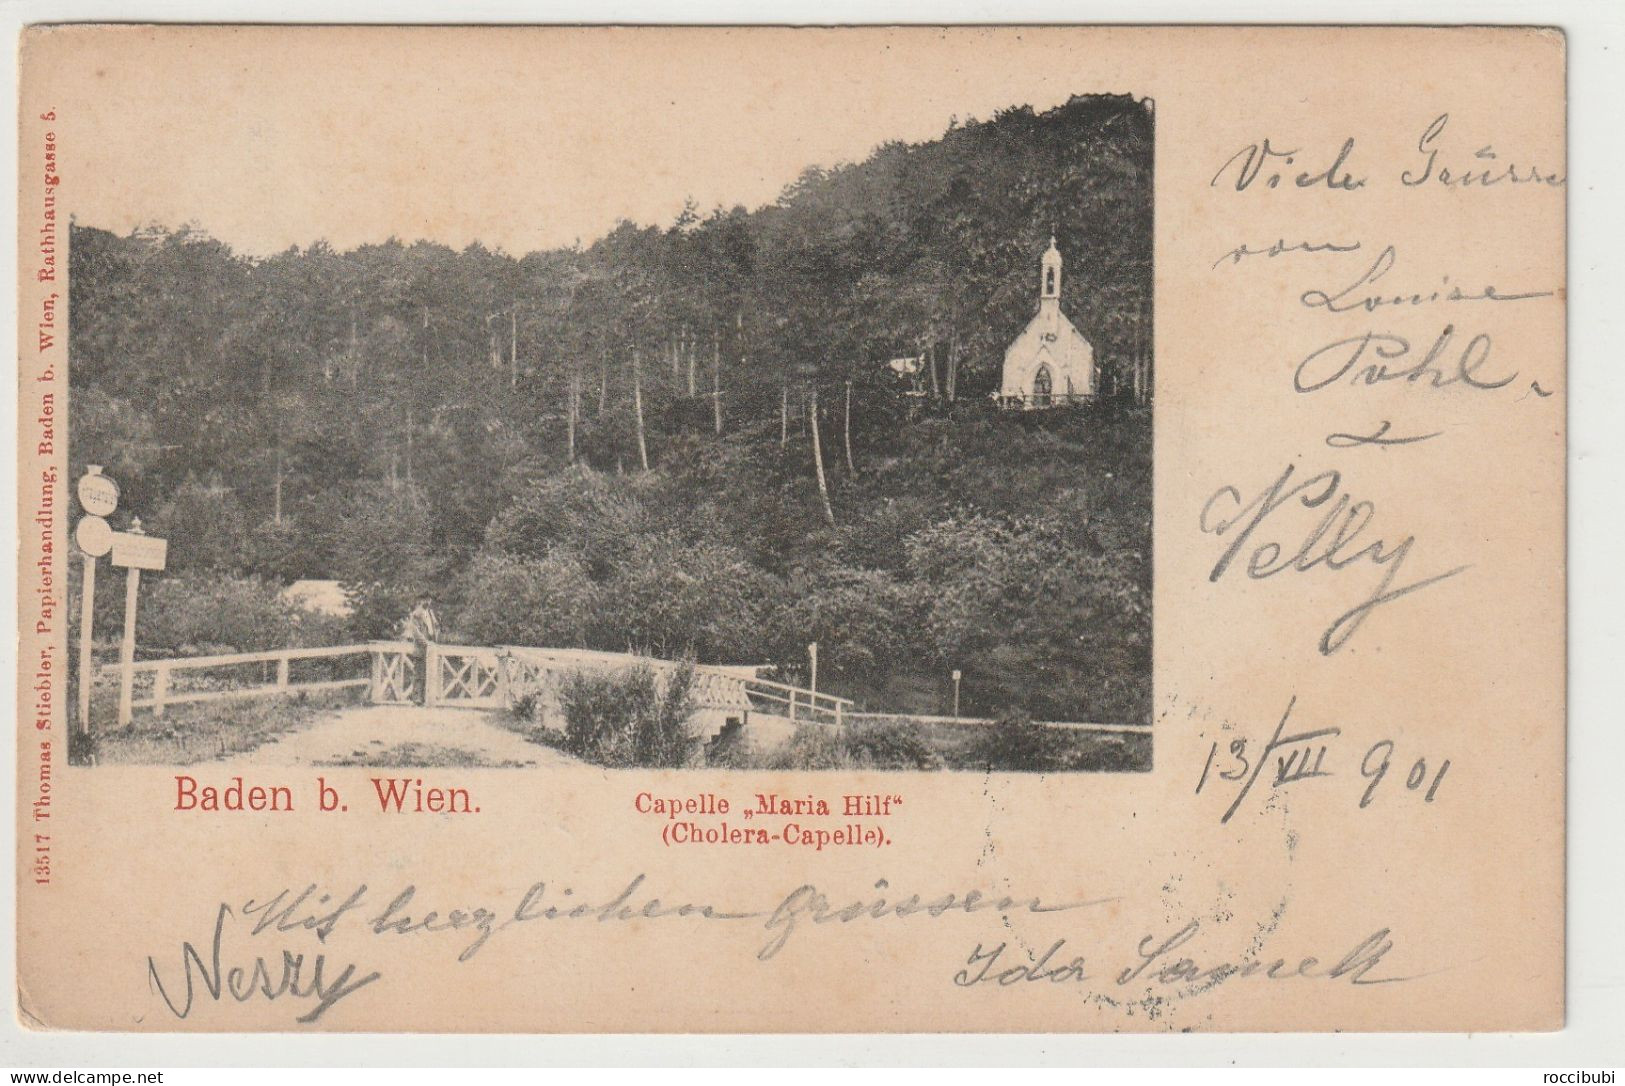 13517 Thomas Stiebler, Papierhandlung, Baden b. Wien, Rathhausgasse 5.
Viele Grüsse
von
Louise
Pohl
&
Nelly
13/VII 901
Baden b. Wien.
Capelle „Maria Hilf“
(Cholera-Capelle).
Mit herzlichen Grüssen
Ida Samek
delcampe.net
roccibubi